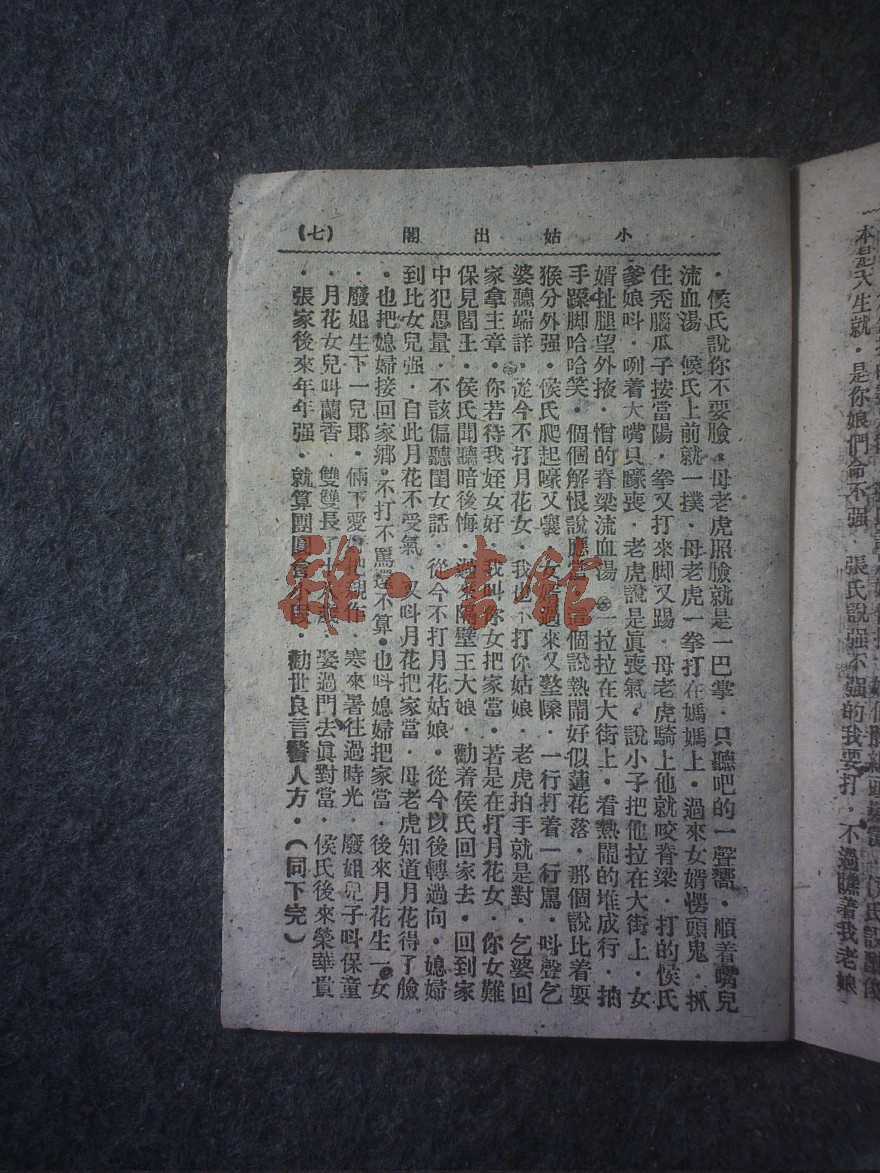 小姑出閣 (七)
・侯氏說你不要臉・母老虎照臉就是一巴掌・只聽吧的一聲嚮・順着嘴兒
流血湯・侯氏上前就一撲・母老虎一拳打在媽媽上・過來女婿愣頭鬼・抓
住禿腦瓜子按當陽・拳又打來脚又踢・母老虎騎上他就咬脊梁・打的侯氏
爹娘呌・咧着大嘴只嚎喪・老虎說是眞喪氣・說小子把他拉在大街上・女
婿扯腿望外掖・憎的脊梁流血湯・一拉拉在大街上・看熱鬧的堆成行・抽
手蹂脚哈哈笑・個個解恨說應當・這個說熱鬧好似蓮花落・那個說比着耍
猴分外强・侯氏爬起嚎又嚷・女婿過來又整隟・一行打着一行罵・呌聲乞
婆聽端詳・從今不打月花女・我也不打你姑娘・老虎拍手就是對・乞婆回
家拿主章・你若待我姪女好・我叫你女把家當・若是在打月花女・你女難
保見閻王・侯氏聞聽暗後悔・過來隔壁王大娘・勸着侯氏回家去・回到家
中犯思量・不該偏聽閨女話・從今不打月花姑娘・從今以後轉過向・媳婦
到比女兒强・自此月花不受氣・又呌月花把家當・母老虎知道月花得了臉
・也把媳婦接回家鄉・不打不罵還不算・也呌媳婦把家當・後來月花生一女
・廢姐生下一兒郎・倆下愛 親作・寒來署往過時光・廢姐兒子呌保童
・月花女兒叫蘭香・雙雙長了十 歲・娶過門去眞對當・侯氏後來榮華貴
・張家後來年年强・就算團圓 ・勸世良言警人方・(同下完)
本是天生就・是你娘們命不强・張氏說强不强的我要打・不過瞧著我老娘
雜・書館